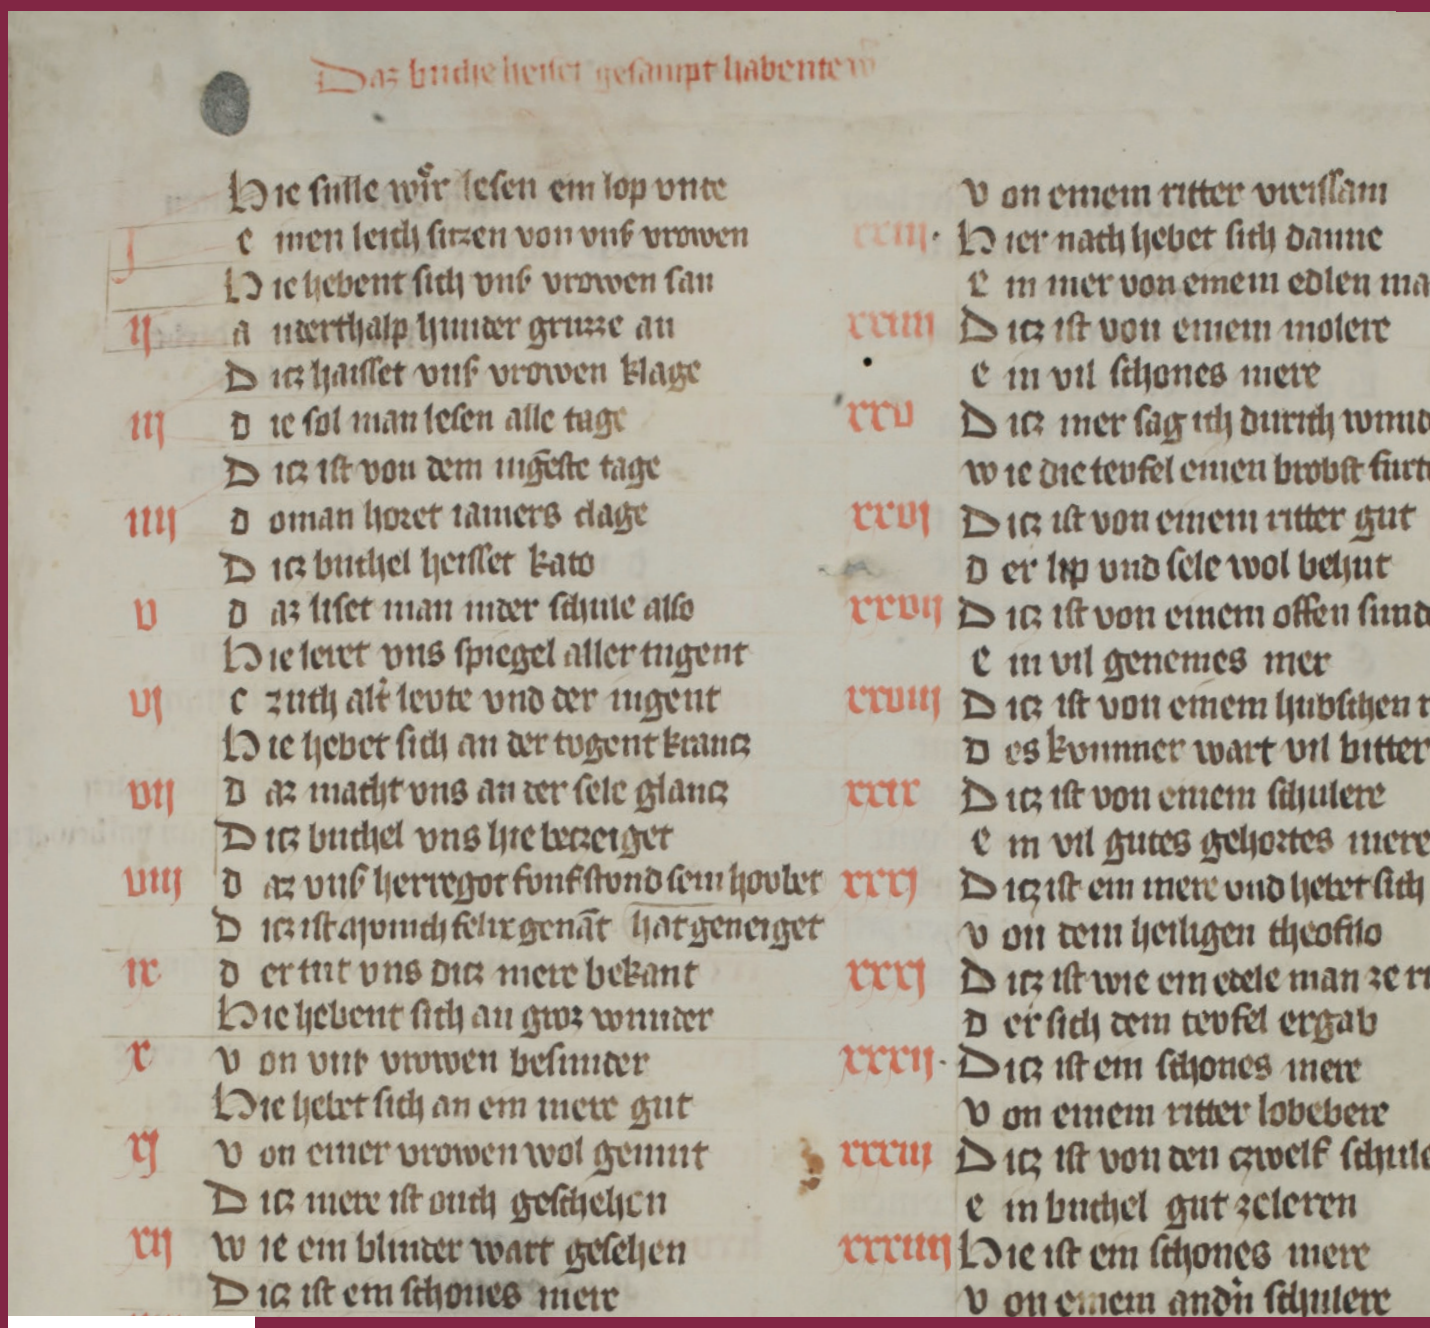 Daz buche heizet gesampt habentewr
Hie sulle wir lesen ein lop vnte
j einen leich sitzen von vnser vrowen
Hie hebent sich vnser vrowen san
ij anderthalp hunder gruzze an
Ditz haisset vnser vrowen klage
iij die sol man lesen alle tage
Ditz ist von dem iungeste tage
iiij do man horet iamers clage
Ditz buchel heisset kato
v daz liset man in der schule also
Hie leret vns spiegel aller tugent
vj e zuch alt levte vnd der iugent
Hie hebet sich an der tvgent krantz
vij daz macht vns an der sele glantz
Ditz buchel vns hie betzeiget
viij daz vnser herregot fvnfstvnd sein hovbet
Ditz ist a mvnich felix genant hat geneiget
ix der tut vns ditz mere bekant
Hie hebent sich an groz wunder
x von vnser vrowen besunder
Hie hebet sich an ein mere gut
xj von einer vrowen wol gemut
Ditz mere ist ouch geschehen
xij wie ein blinder wart gesehen
Ditz ist ein schones mere
von einem ritter vreissam
xxiij Hier nach hebet sich danne
ein mer von einem edlen ma
xxiiij Ditz ist von einem molere
ein vil schones mere
xxv Ditz mer sag ich durch wund
wie die tevfel einen brobst furt
xxvj Ditz ist von einem ritter gut
der lip vnd sele wol behut
xxvij Ditz ist von einem offen sund
ein vil genemes mer
xxviij Ditz ist von einem hubschen r
des kvmmer wart vil bitter
xxix Ditz ist von einem schulere
ein vil gutes gehortes mere
xxxj Ditz ist ein mere vnd hebet sich
von dem heiligen theofilo
xxxj Ditz ist wie ein edele man ze ri
der sich dem tevfel ergab
xxxij Ditz ist ein schones mere
von einem ritter lobebere
xxxiij Ditz ist von den czwelf schule
ein buchel gut ze leren
xxxiiij Hie ist ein schones mere
von einem andn schulere